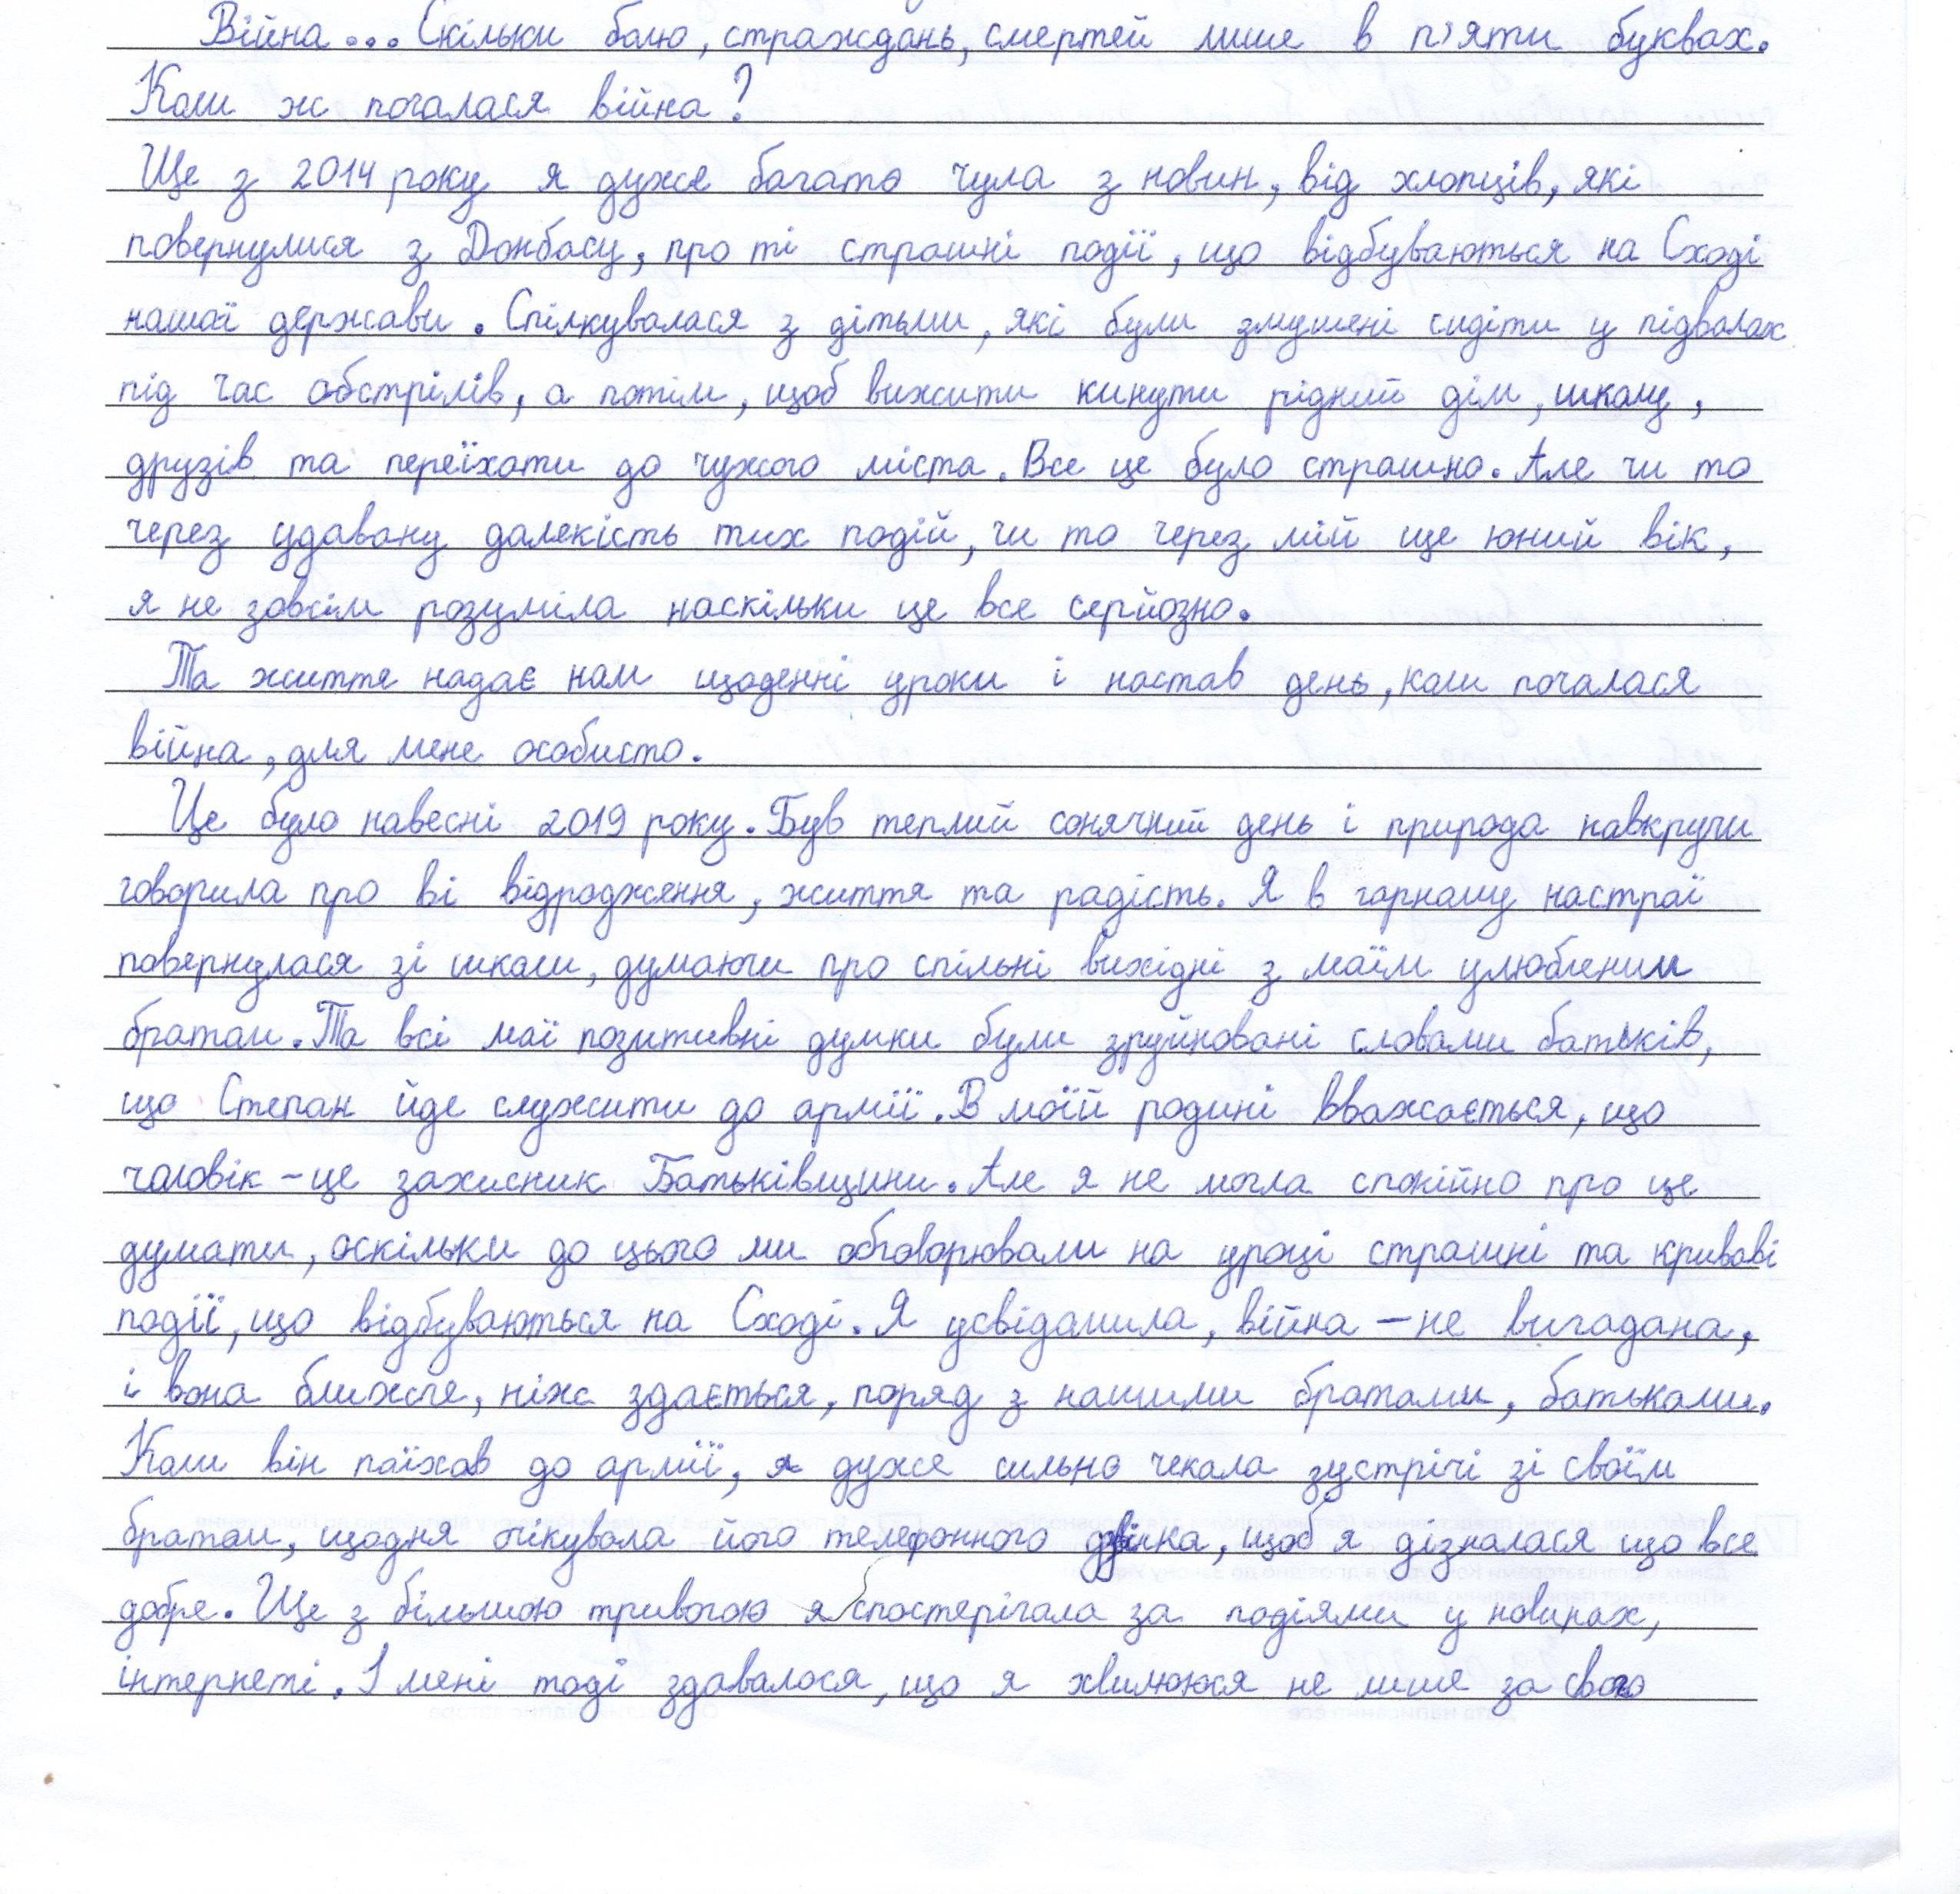 Війна... Скільки болю, страждань, смертей лише в п'яти буквах.
Коли ж почалася війна?
Ще з 2014 року я дуже багато чула з новин, від хлопців, які
повернулися з Донбасу, про ті страшні події, що відбуваються на Сході
нашої держави. Спілкувалася з дітьми, які були змушені сидіти у підвалах
під час обстрілів, а потім, щоб вижити кинути рідний дім, школу,
друзів та переїхати до чужого міста. Все це було страшно. Але чи то
через удавану далекість тих подій, чи то через мій ще юний вік,
я не зовсім розуміла наскільки це все серйозно.
Та життя надає нам щоденні уроки і настав день, коли почалася
війна, для мене особисто.
Це було навесні 2019 року. Був теплий сонячний день і природа навкруги
говорила про ві відродження, життя та радість. Я в гарному настрої
повернулася зі школи, думаючи про спільні вихідні з моїм улюбленим
братом. Та всі мої позитивні думки були зруйновані словами батьків,
що Степан йде служити до армії. В моїй родині вважається, що
чоловік – це захисник Батьківщини. Але я не могла спокійно про це
думати, оскільки до цього ми обговорювали на уроці страшні та криваві
події, що відбуваються на Сході. Я усвідомила, війна – не вигадана,
і вона ближче, ніж здається, поряд з нашими братами, батьками.
Коли він поїхав до армії, я дуже сильно чекала зустрічі зі своїм
братом, щодня очікувала його телефонного дзвінка, щоб я дізналася що все
добре. Ще з більшою тривогою я спостерігала за подіями у новинах,
інтернеті. І мені тоді здавалося, що я хвилююся не лише за свого